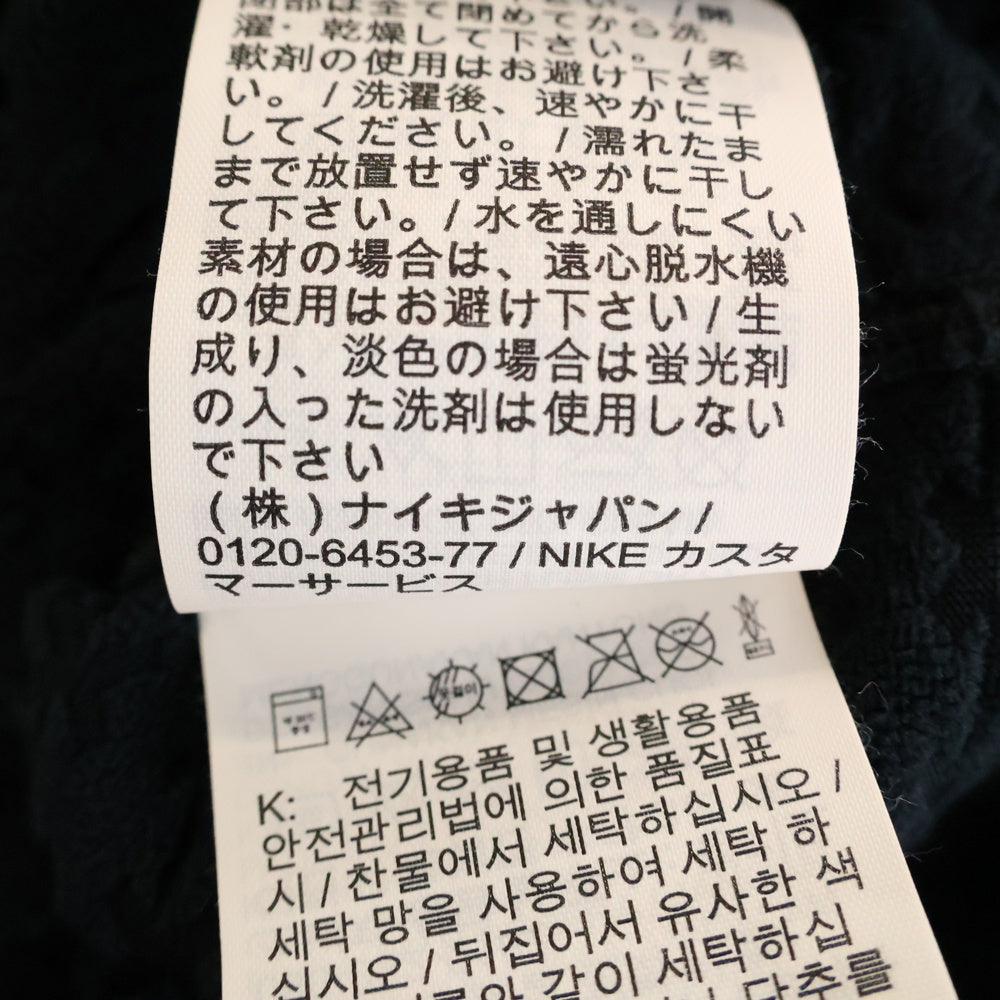 開部は全て閉めてから洗
濯・乾燥して下さい。/ 柔
軟剤の使用はお避け下さ
い。/ 洗濯後、速やかに干
してください。/ 濡れたま
まで放置せず速やかに干し
て下さい。/ 水を通しにくい
素材の場合は、遠心脱水機
の使用はお避け下さい / 生
成り、淡色の場合は蛍光剤
の入った洗剤は使用しない
で下さい
(株)ナイキジャパン /
0120-6453-77 / NIKE カスタ
マーサービス
K: 전기용품 및 생활용품
안전관리법에 의한 품질표
시 / 찬물에서 세탁하십시오 /
세탁 망을 사용하여 세탁 하
십시오 / 뒤집어서 유사한 색
같이 세탁하십
단추를